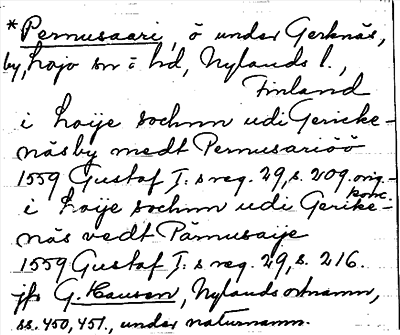 *Pernusaari, ö under Gerknäs,
by, Lojo sn o hd, Nylands l.,
Finland
i Loije sochnn udi Gericke-
näsby medt Pernusariöö
1559 Gustaf I: s reg. 29, s. 209. orig.-
konc.
i Loije sochnn udi Gerike-
näs vedt Pärnusaije
1559 Gustaf I: s reg. 29, s. 216.
jfr G. Hausen, Nylands ortnamn,
ss. 450, 451., under naturnamn.